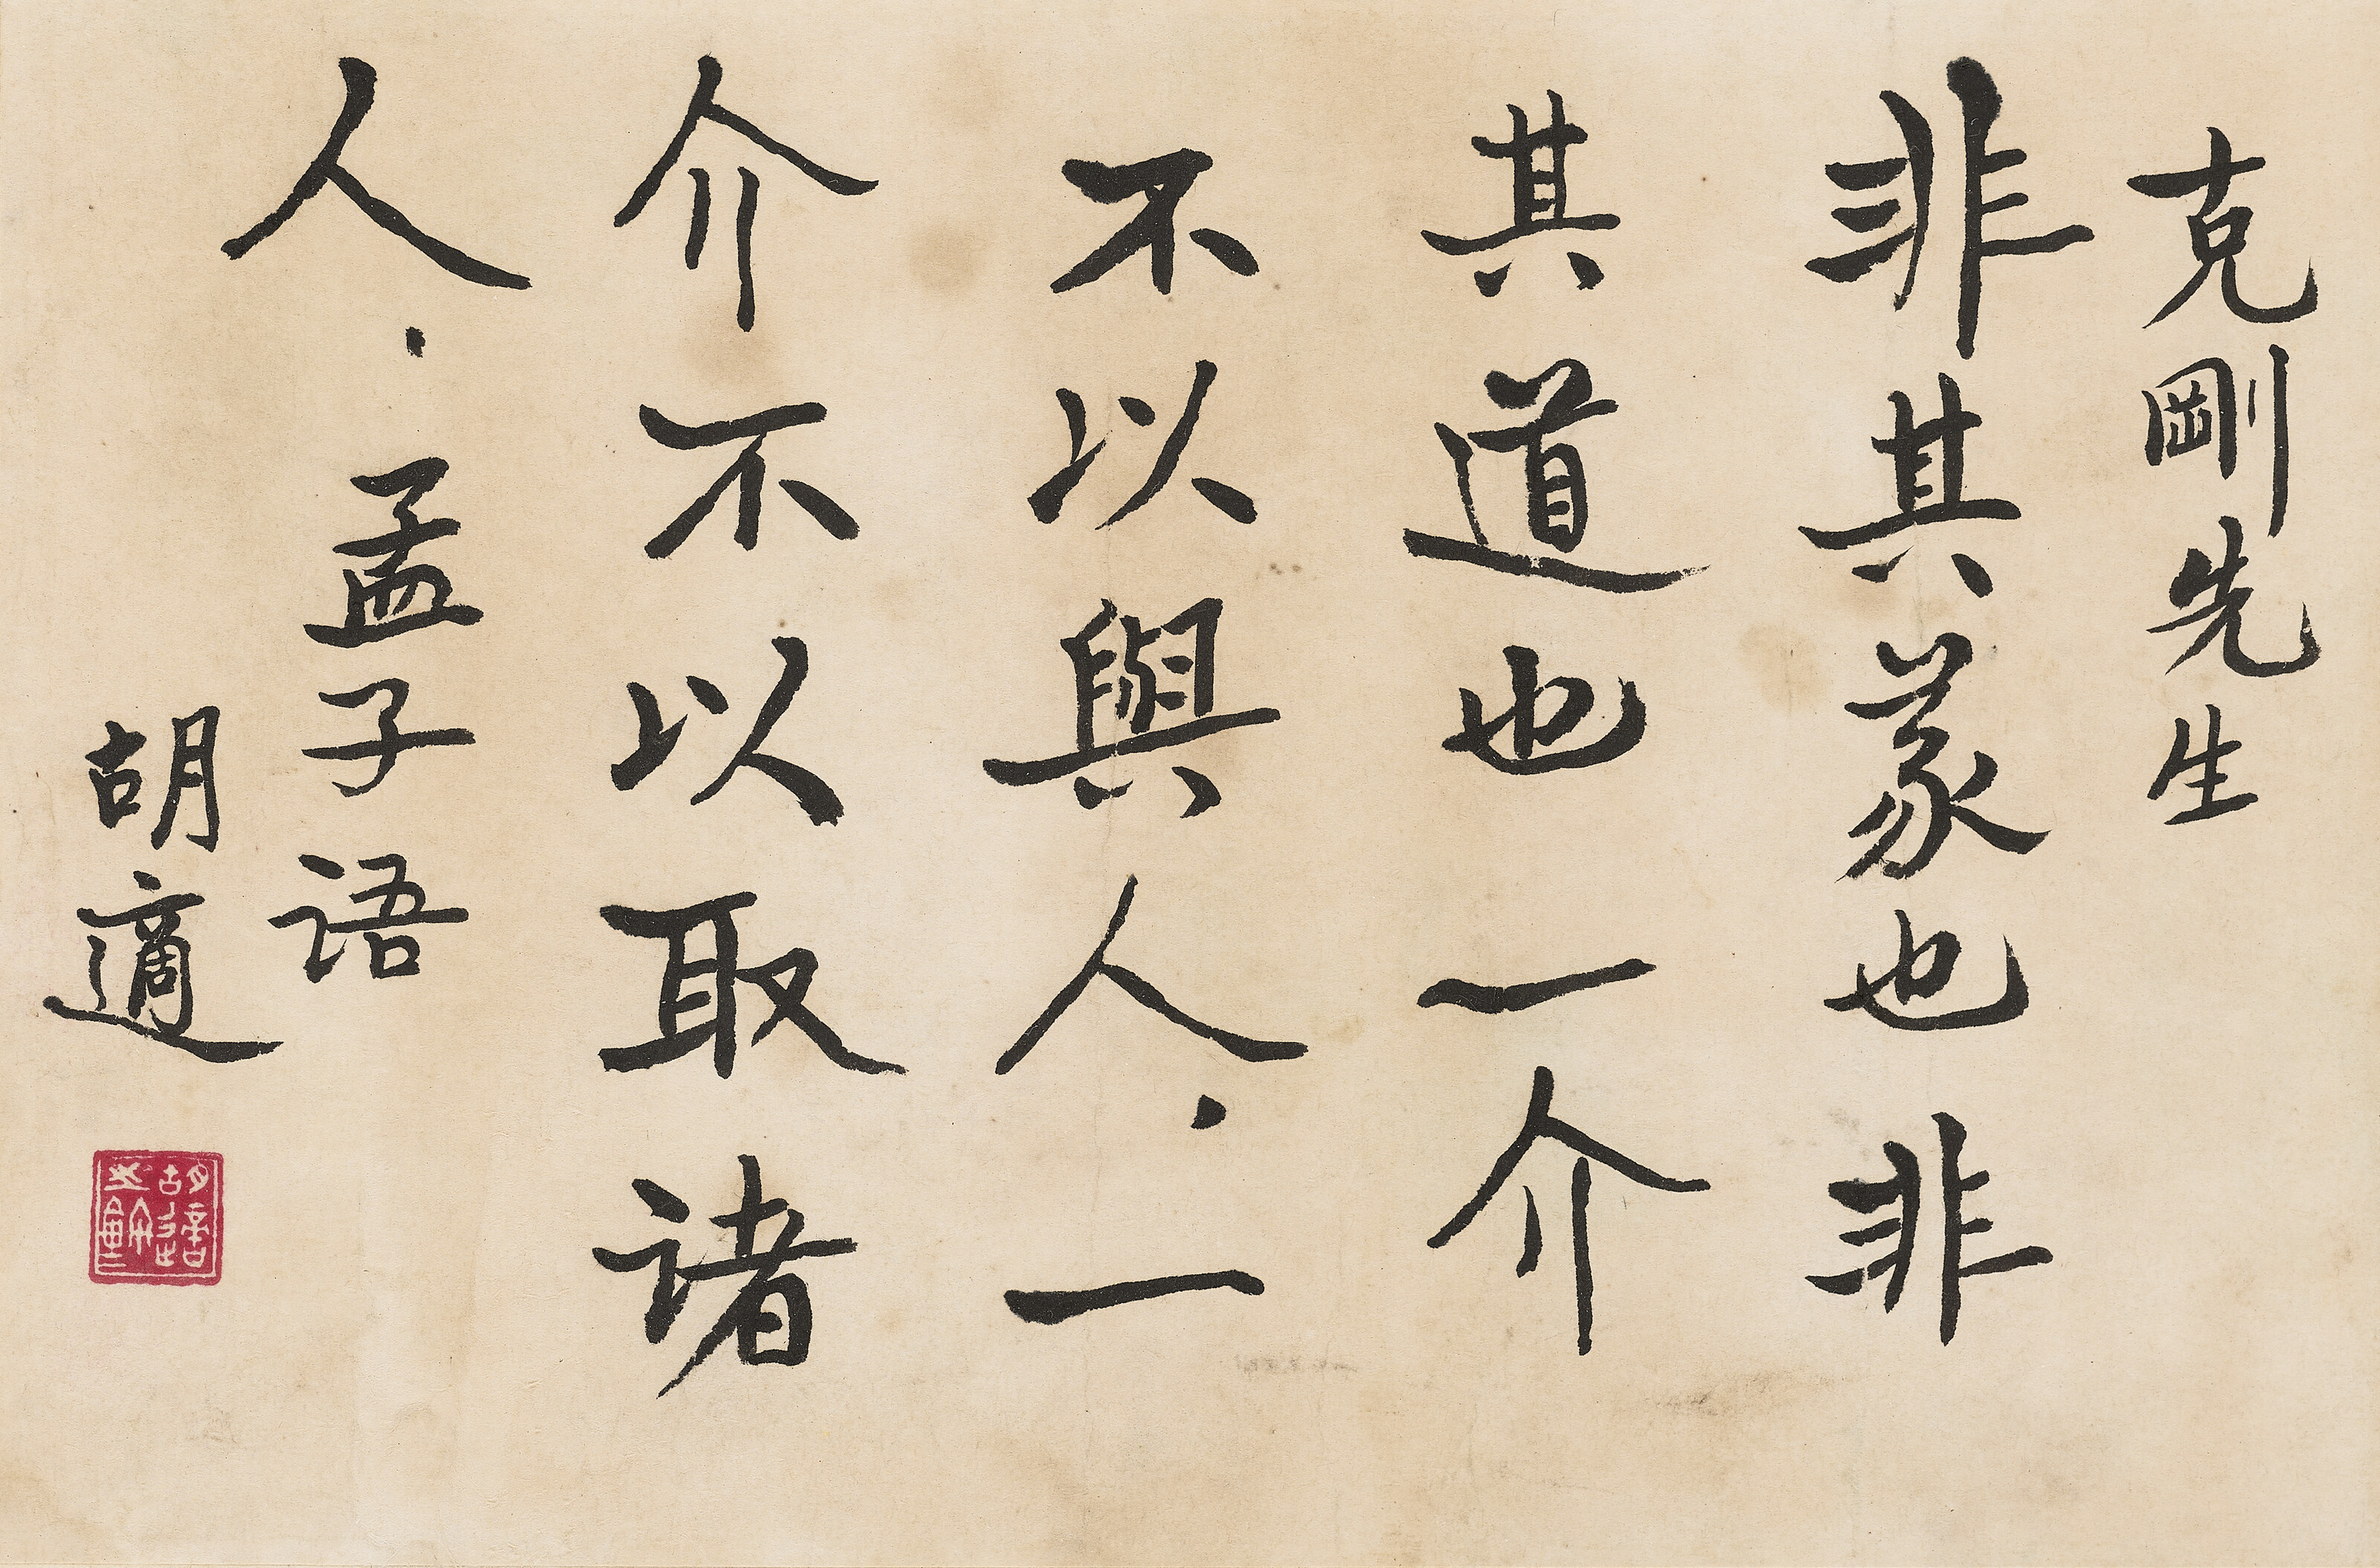 克剛先生
非其義也非
其道也一介
不以與人．一
介不以取諸
人．孟子語
胡適